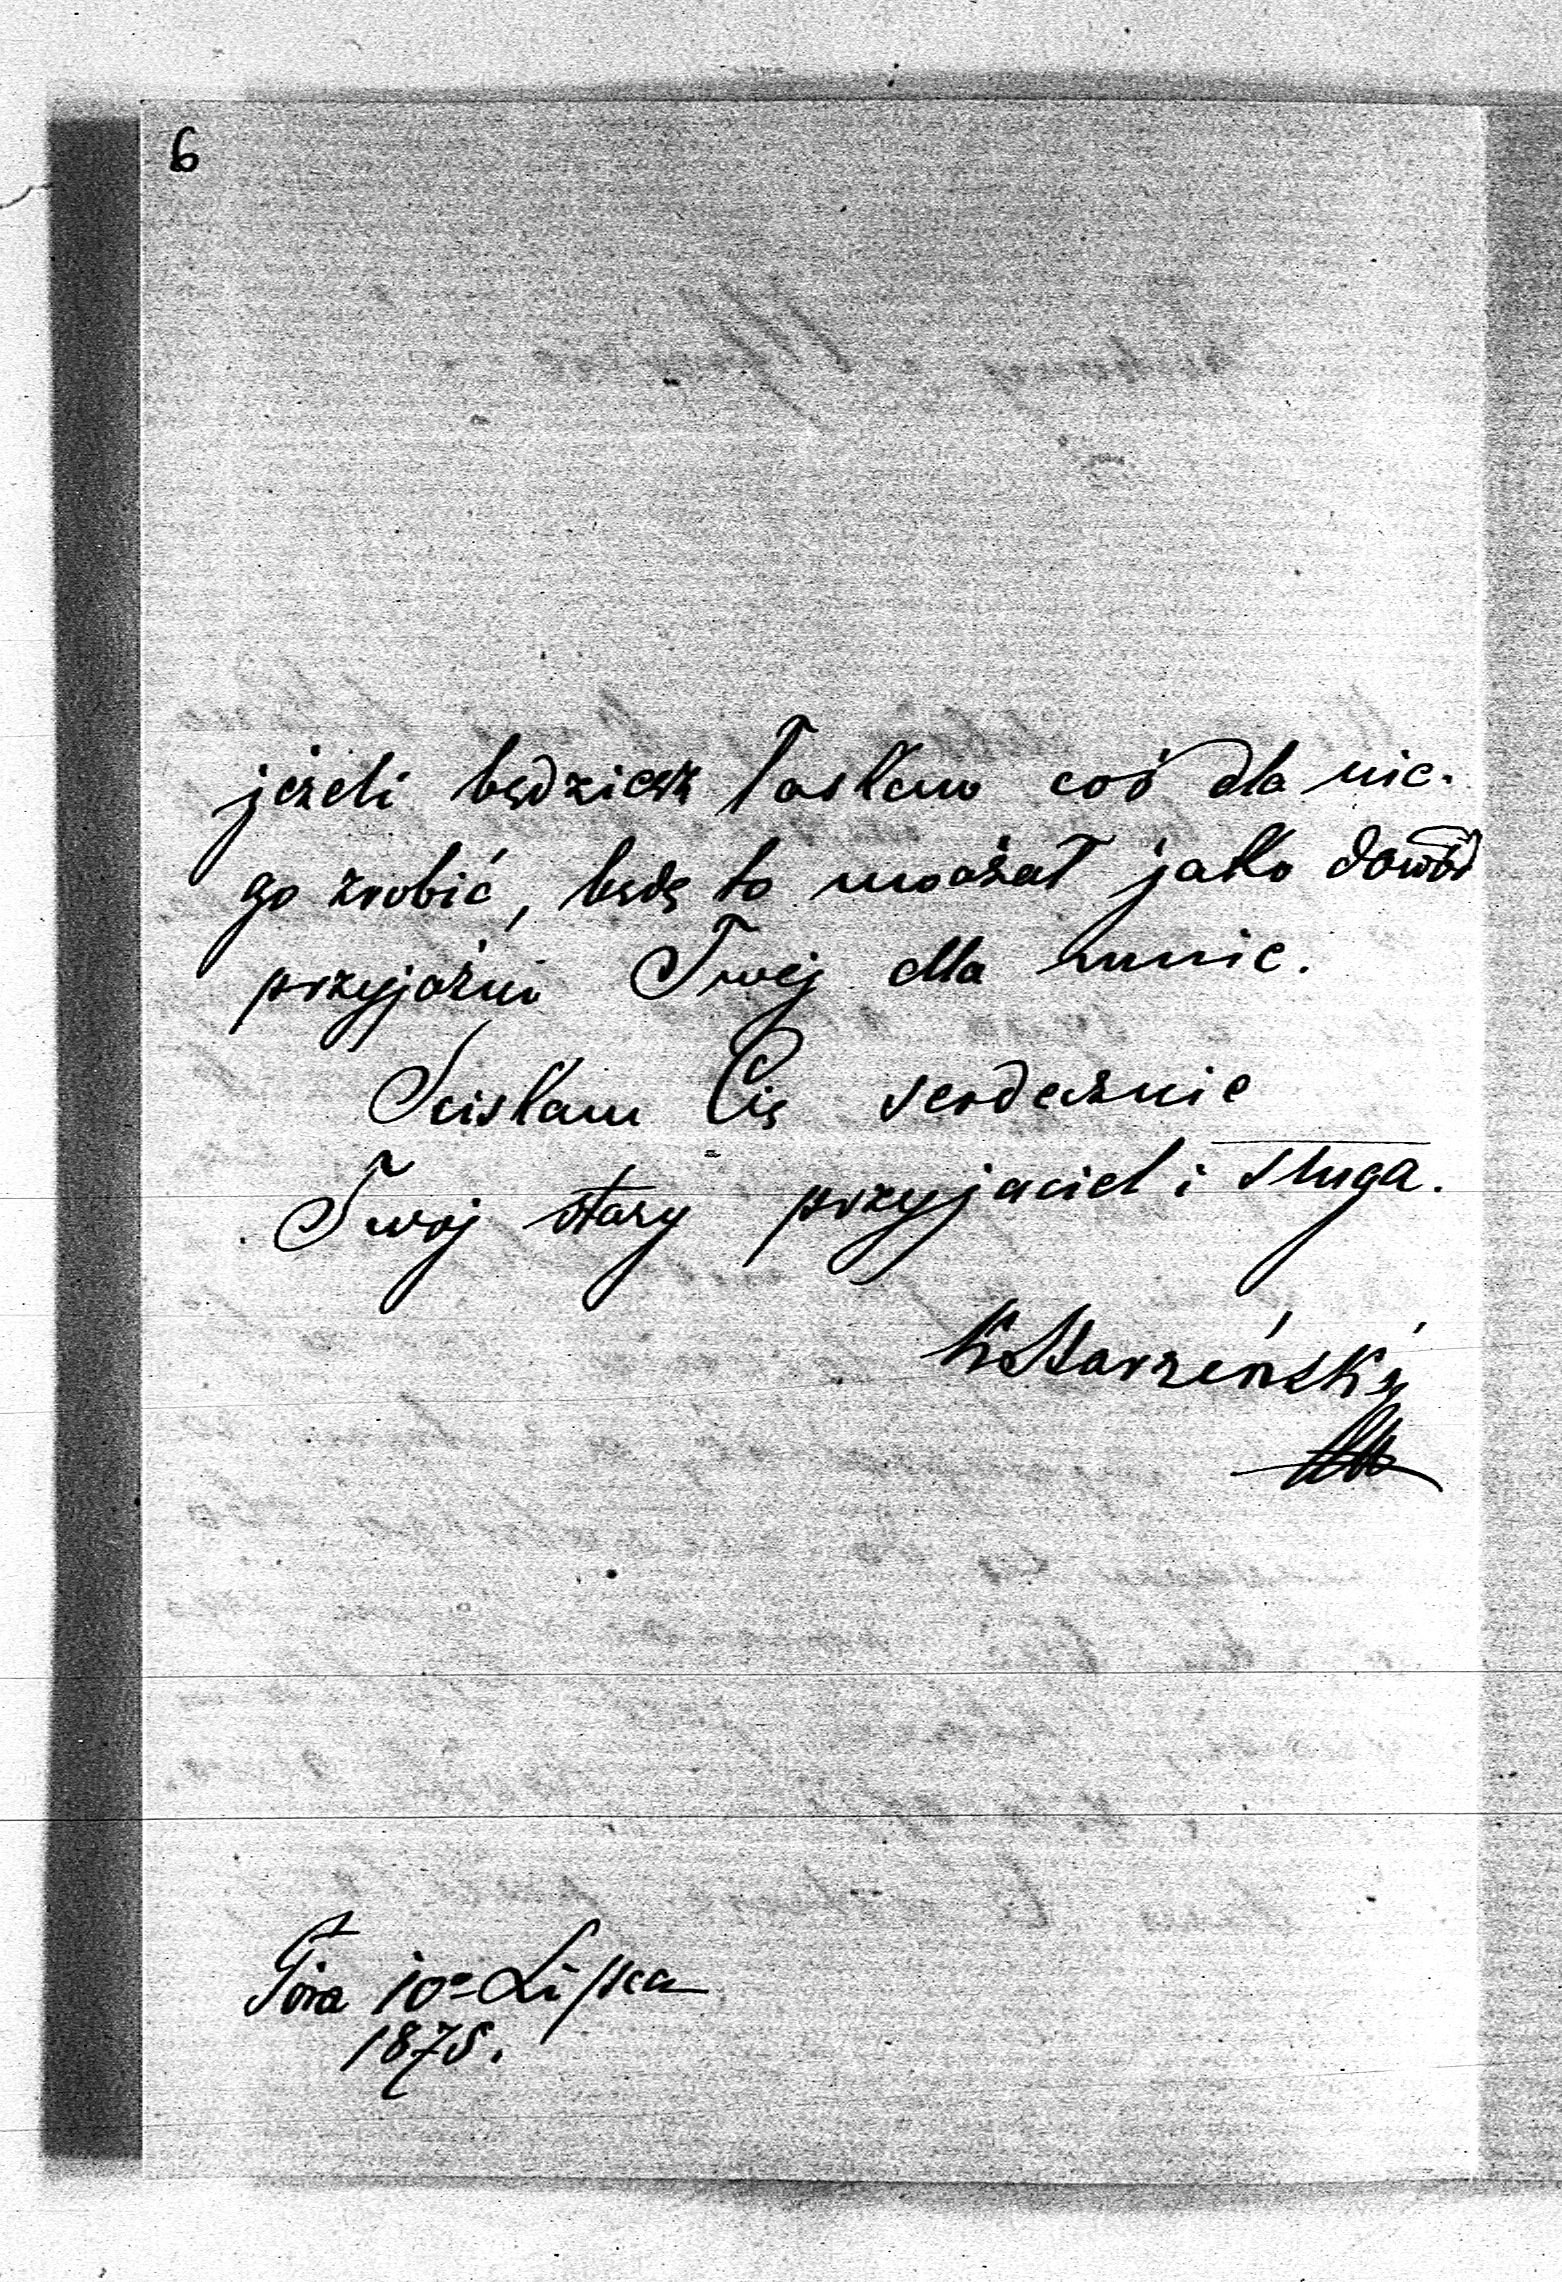 6
jeżeli będziesz łaskaw coś dla nie-
go zrobić, będę to uważał jako dowód
przyjaźni Twej dla mnie.
Sciskam Cię serdecznie
Twoj stary przyjaciel i sługa.
Starzeński
Góra 10º Lipca
1875.